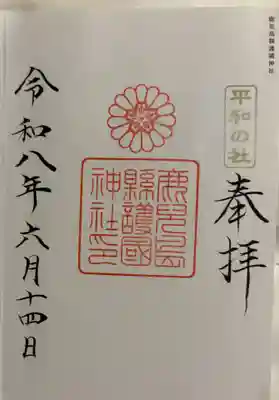 鹿児島縣護國神社
平和の社
奉拝
鹿児島
縣護國
神社印
令和八年六月十四日